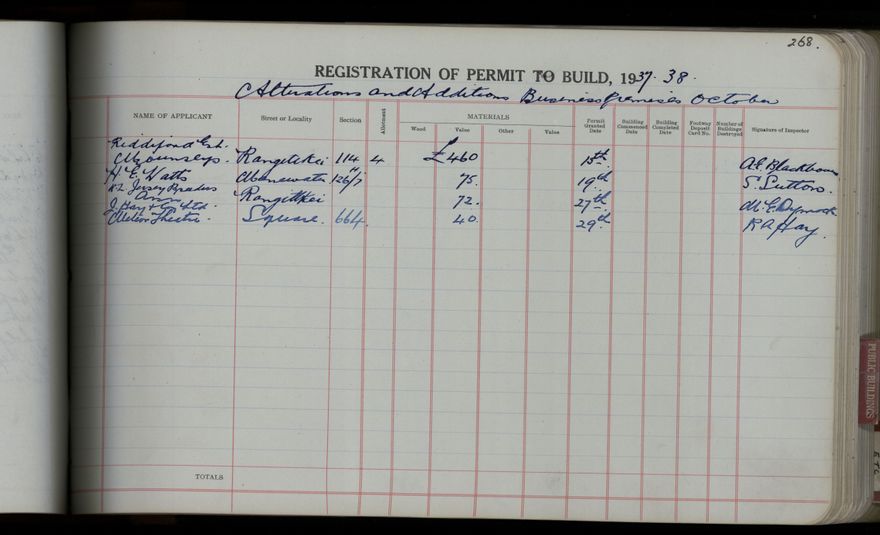 268.
REGISTRATION OF PERMIT TO BUILD, 1937-38.
Alterations and Additions Business Premises October
NAME OF APPLICANT Street or Locality Section Allotment MATERIALS Permit Granted Date Building Commenced Date Building Completed Date Footway Deposit Card No. Number of Buildings Destroyed Signature of Inspector
Wood Value Other Value
Riddiford Est.
Rangitikei 114 4 £460 15th A.E. Blackbourn
H. E. Watts Manawatu 126/7 75. 19th S. Sutton.
N.Z. Jersey Breeders
Assn Rangitikei 72. 27th
J. Hay & Co Ltd.
Meteor Theatre. Square. 664 40. 29th R A Hay.
TOTALS
PUBLIC BUILDINGS